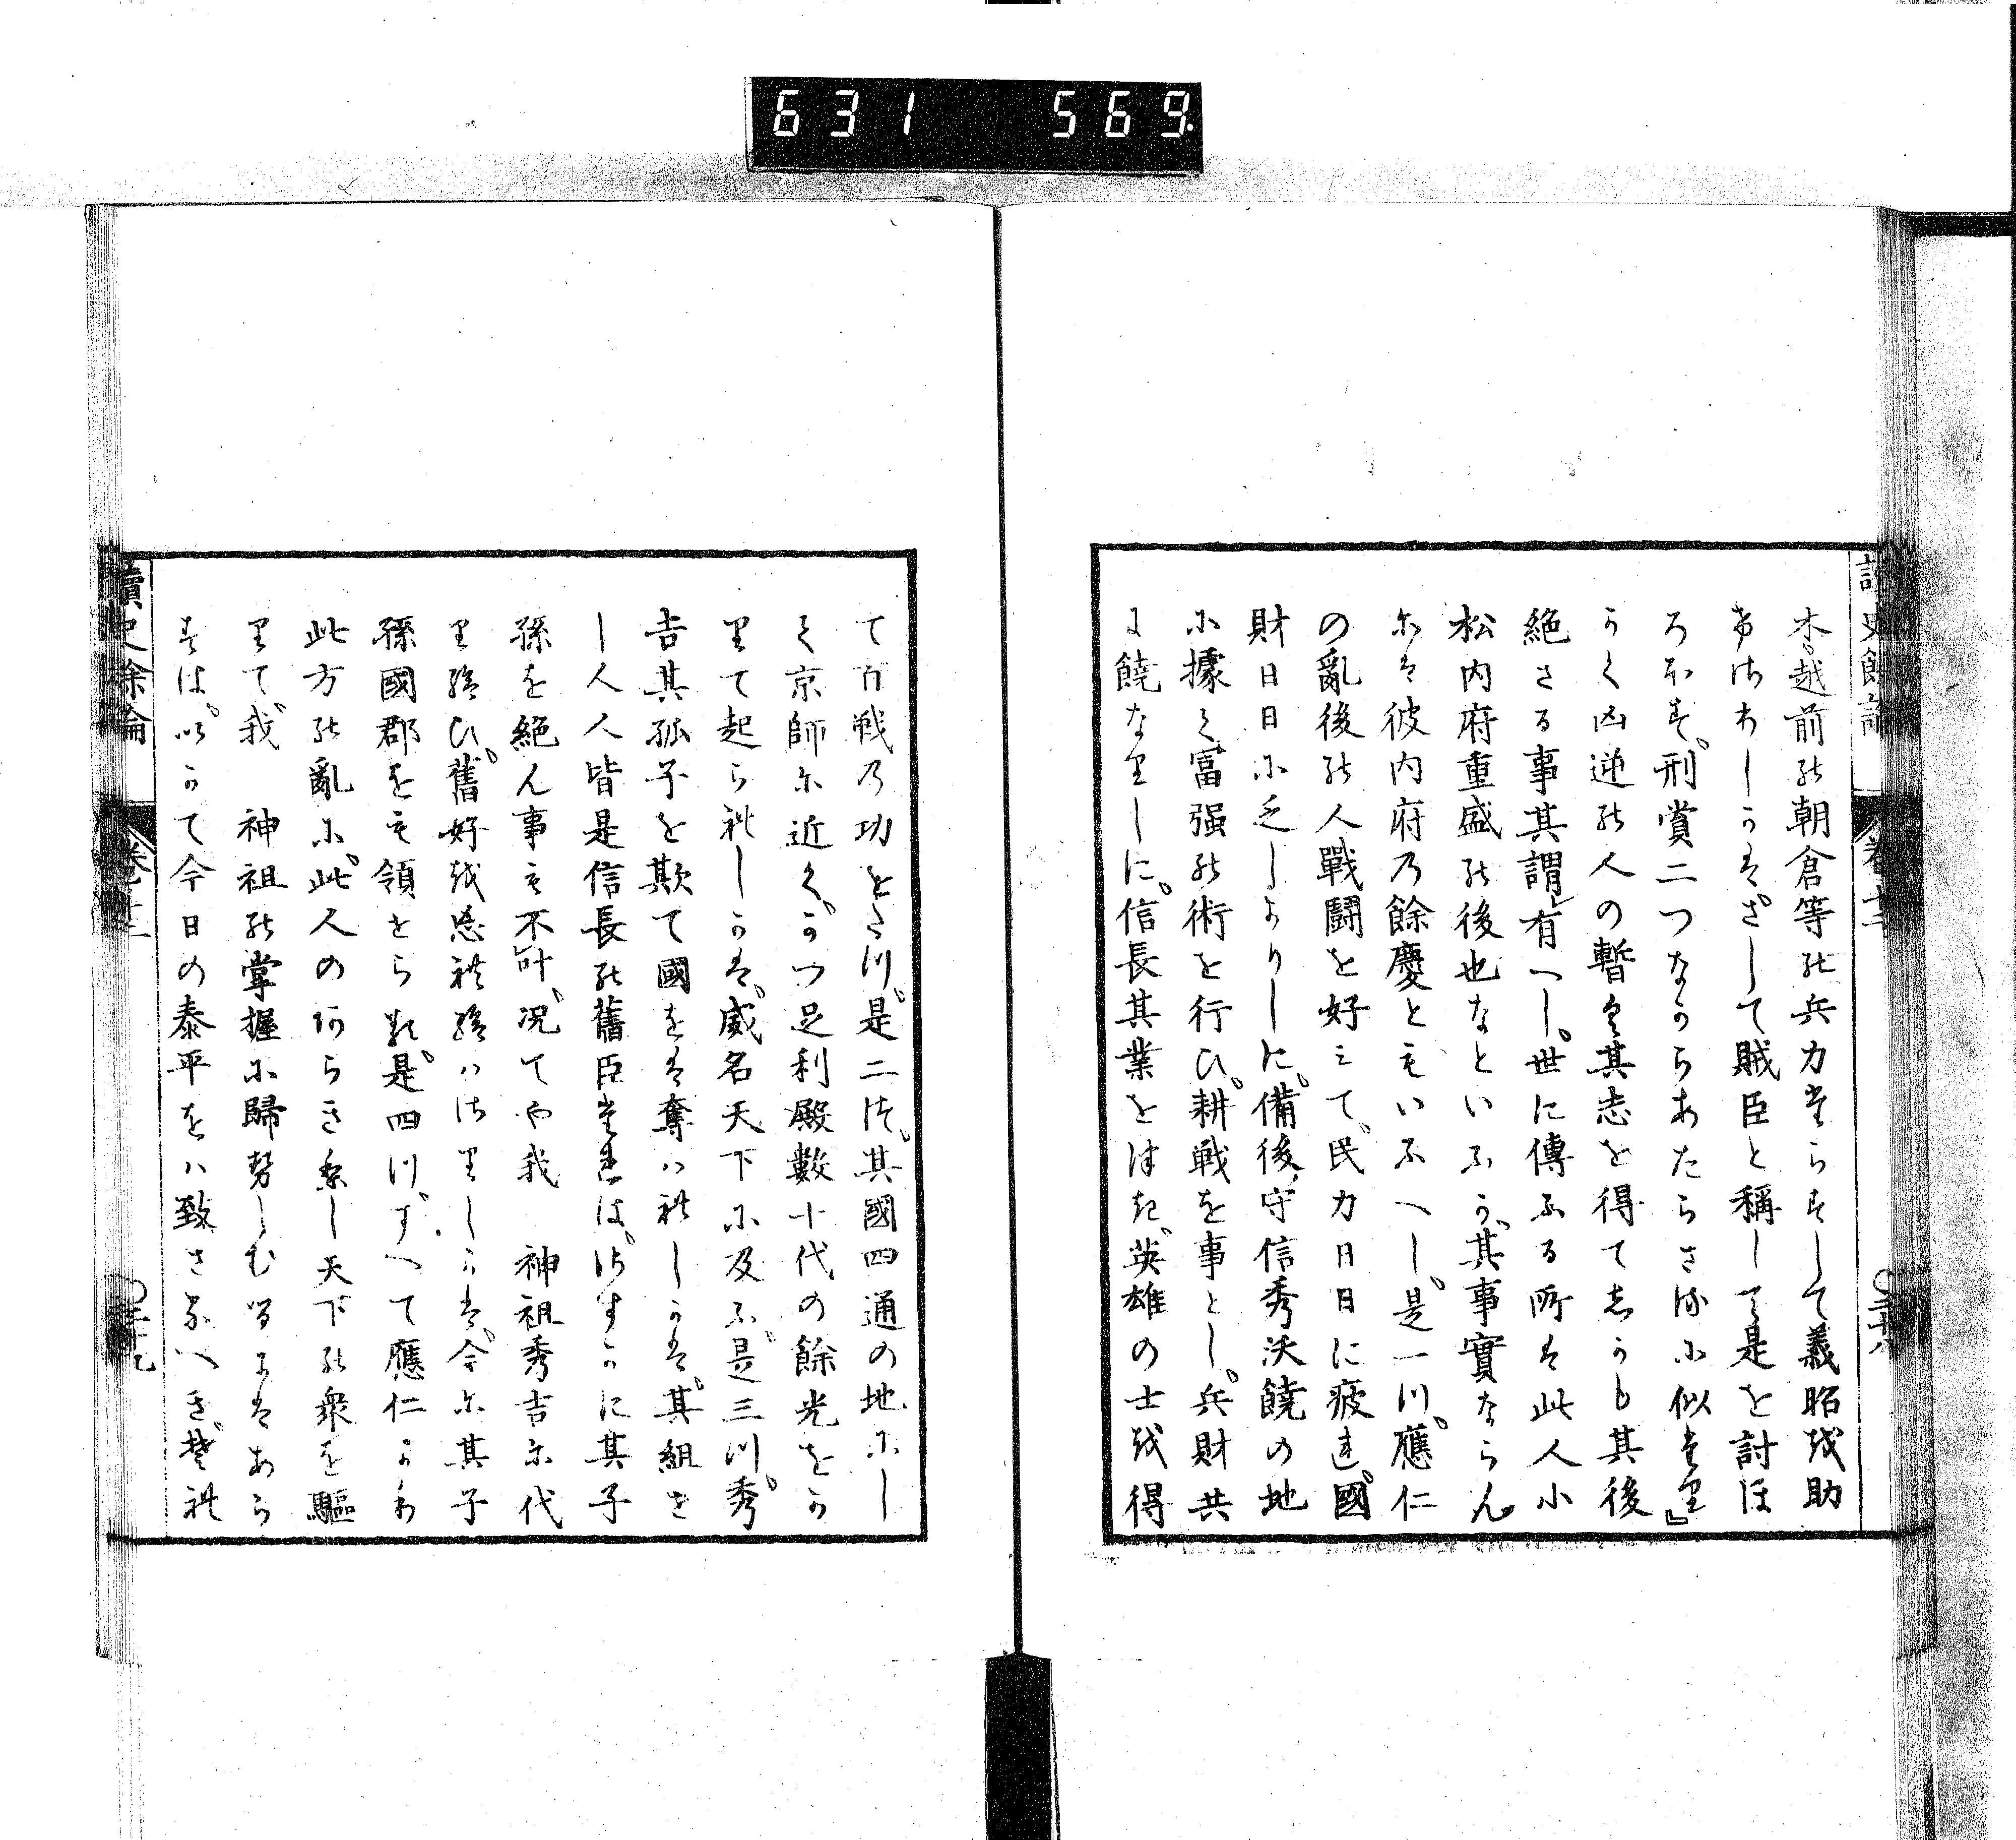 631 569
讀史餘論 卷十二 〇三十八
木。越前の朝倉等の兵力をからすして義昭を助
けまゐらしかはさして賊臣と稱して是を討ほ
ろぼす。刑賞二つなからあたらさるに似たり』
かく凶逆の人の暫く其志を得てしかも其後
絶さる事其謂有へし。世に傳ふる所は此人小
松内府重盛の後也なといふか。其事實ならん
には彼内府の餘慶ともいふへし。是一つ。應仁
の亂後の人戰鬪を好みて。民力日日に疲れ。國
財日日に乏しかりしに。備後守信秀沃饒の地
に據て富强の術を行ひ。耕戰を事とし。兵財共
に饒なりしに。信長其業をつき。英雄の士を得
て百戰の功をたつ。是二つ。其國四通の地にし
て京師に近く。かつ足利殿數十代の餘光をか
りて起られしかは。威名天下に及ふ是三つ。秀
吉其孤子を欺て國をは奪はれしかは。其組せ
し人人皆是信長の舊臣たれは。さすかに其子
孫を絶ん事も不叶。况てや我 神祖秀吉に代
り給ひ。舊好を忘れ給はさりしかは。今に其子
孫國郡をも領せられ。是四つ。すへて應仁より
此方の亂に。此人のはらき系し天下の衆を驅
りて。我 神祖の掌握に歸せしむるにはあら
すは。いかて今日の泰平をは致さるへき。それ
讀史餘論 卷十二 〇三十九